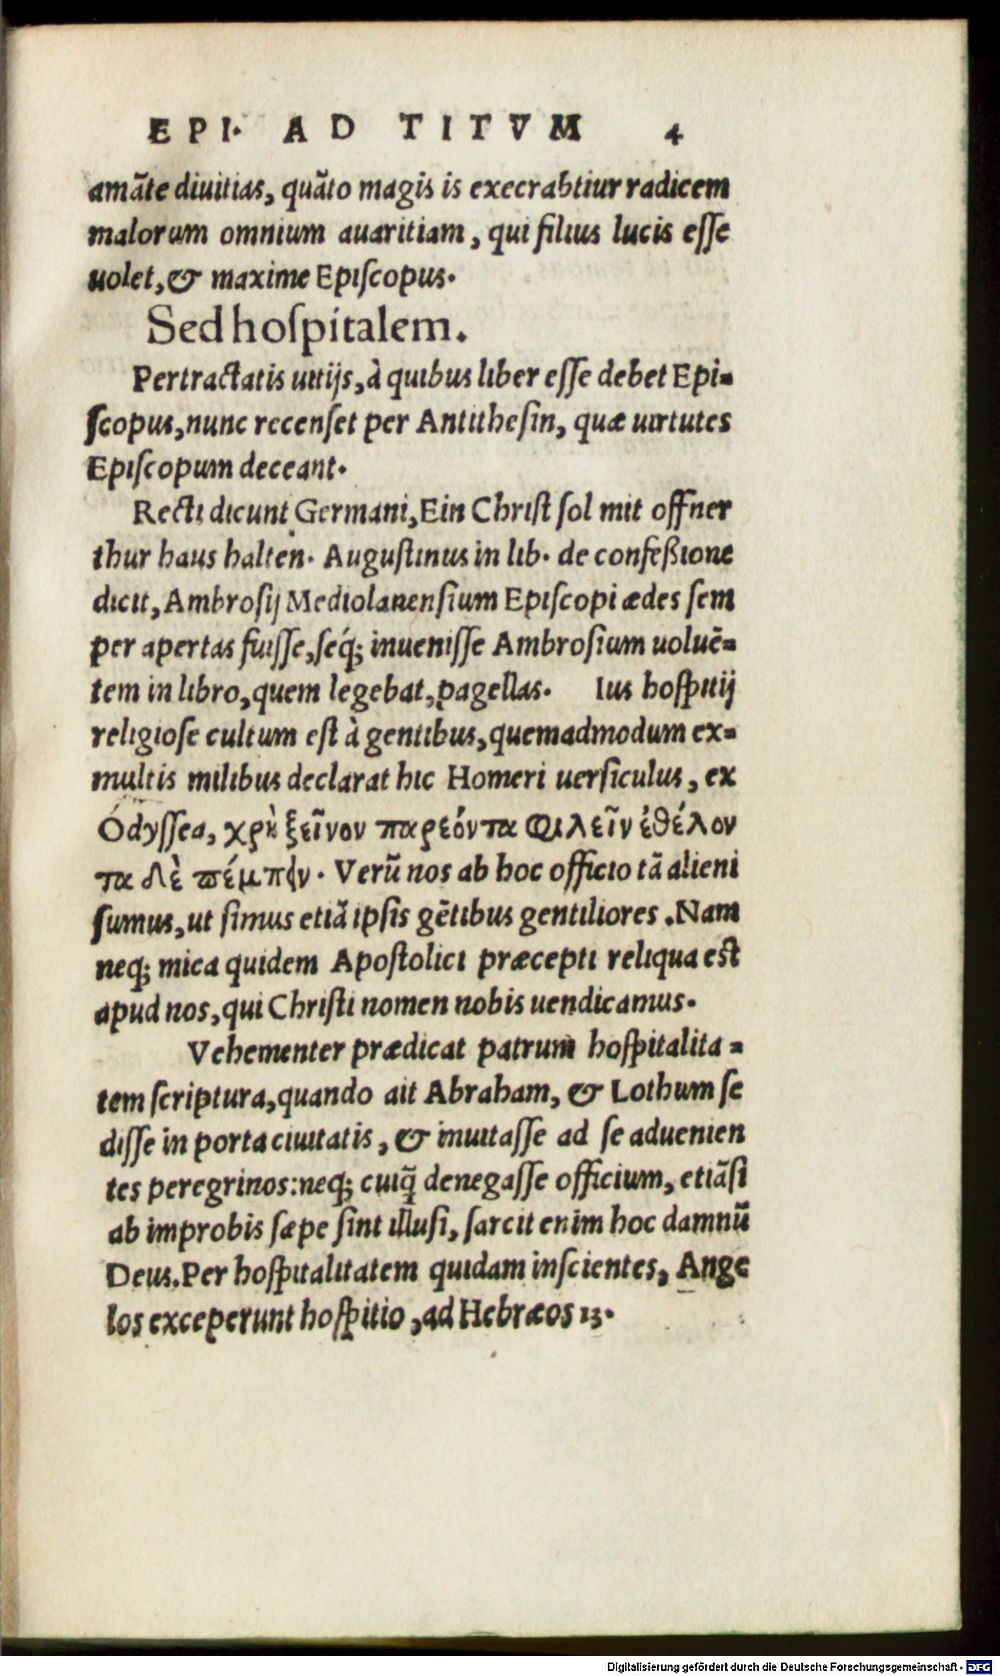 EPI. AD TITVM 4
amāte diuitias, quāto magis is execrabtiur radicem
malorum omnium auaritiam, qui filius lucis esse
uolet, & maxime Episcopus.
Sed hoſpitalem.
Pertractatis uitijs, à quibus liber eſſe debet Epi-
ſcopus, nunc recenſet per Antitheſin, quæ uirtutes
Epiſcopum deceant.
Recti dicunt Germani, Ein Chriſt ſol mit offner
thur haus halten. Auguſtinus in lib. de confeßione
dicit, Ambroſij Mediolanenſium Epiſcopi ædes ſem
per apertas fuiſſe, ſeq́; inueniſſe Ambroſium uoluē-
tem in libro, quem legebat, pagellas. Ius hoſpitij
religioſe cultum eſt à gentibus, quemadmodum ex-
multis milibus declarat hic Homeri uerſiculus, ex
Odyſſea, χρὴ ξεῖνον παρεόντα φιλεῖν ἐθέλον
τα δὲ πέμπειν. Verū nos ab hoc officio tā alieni
ſumus, ut ſimus etiā ipſis gētibus gentiliores. Nam
neq; mica quidem Apoſtolici præcepti reliqua eſt
apud nos, qui Chriſti nomen nobis uendicamus.
Vehementer prædicat patrum hoſpitalita-
tem ſcriptura, quando ait Abraham, & Lothum ſe
diſſe in porta ciuitatis, & inuitaſſe ad ſe aduenien
tes peregrinos: neq; cuiq̄ denegaſſe officium, etiāſi
ab improbis ſæpe ſint illuſi, ſarcit enim hoc damnū
Deus. Per hoſpitalitatem quidam inſcientes, Ange
los exceperunt hoſpitio, ad Hebræos 13.
Digitalisierung gefördert durch die Deutsche Forschungsgemeinschaft - DFG